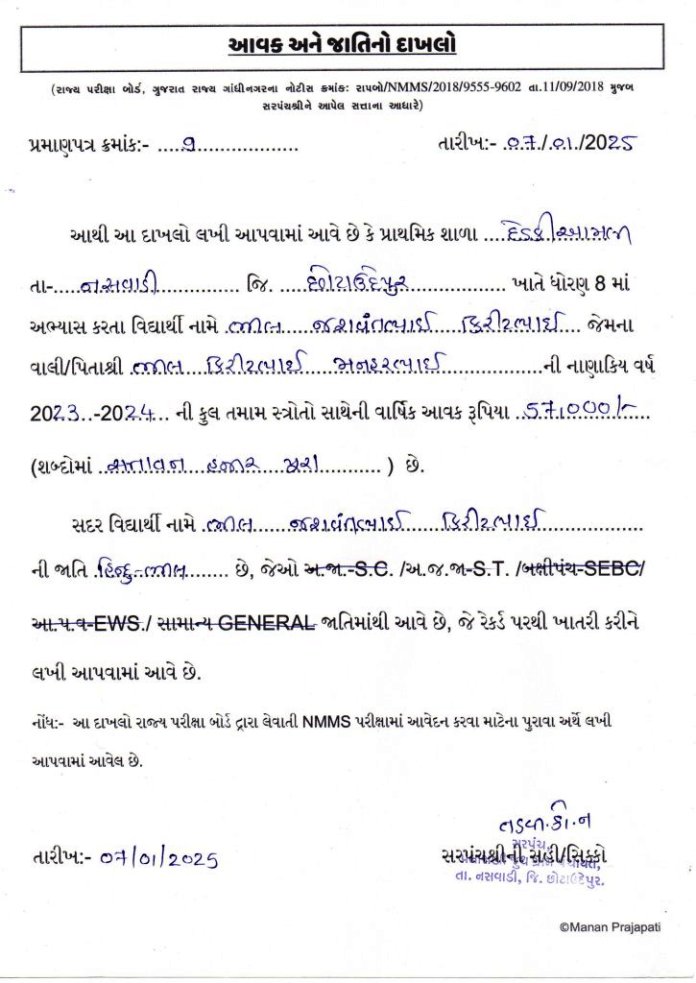 આવક અને જાતિનો દાખલો
(રાજ્ય પરીક્ષા બોર્ડ, ગુજરાત રાજ્ય ગાંધીનગરના નોટીસ ક્રમાંક: રાપબો/NMMS/2018/9555-9602 તા.11/09/2018 મુજબ
સરપંચશ્રીને આપેલ સત્તાના આધારે)
પ્રમાણપત્ર ક્રમાંક:- .....9................... તારીખ:- .07./.01./2025
આથી આ દાખલો લખી આપવામાં આવે છે કે પ્રાથમિક શાળા ....દેડકીઆમલી
તા-....નસવાડી............... જિ. ....છોટાઉદેપુર.................. ખાતે ધોરણ 8 માં
અભ્યાસ કરતા વિદ્યાર્થી નામે .ભીલ.....જશવંતભાઈ.....કિરીટભાઈ.... જેમના
વાલી/પિતાશ્રી .ભીલ...કિરીટભાઈ....મનહરભાઈ...................ની નાણાકિય વર્ષ
2023..-2024... ની કુલ તમામ સ્ત્રોતો સાથેની વાર્ષિક આવક રૂપિયા ..57,000/-
(શબ્દોમાં ..સતાવન...હજાર....પુરા............ ) છે.
સદર વિદ્યાર્થી નામે .ભીલ......જશવંતભાઈ......કિરીટભાઈ...................
ની જાતિ .હિન્દુ-ભીલ......... છે, જેઓ અ.જા.-S.C. /અ.જ.જા-S.T. /બક્ષીપંચ-SEBC/
આ.પ.વ-EWS./ સામાન્ય GENERAL જાતિમાંથી આવે છે, જે રેકર્ડ પરથી ખાતરી કરીને
લખી આપવામાં આવે છે.
નોંધ:- આ દાખલો રાજ્ય પરીક્ષા બોર્ડ દ્વારા લેવાતી NMMS પરીક્ષામાં આવેદન કરવા માટેના પુરાવા અર્થે લખી
આપવામાં આવેલ છે.
તડવી.કી.ન
તારીખ:- 07/01/2025 સરપંચશ્રીની સહી/સિક્કો
સરપંચ,
તા. નસવાડી, જિ. છોટાઉદેપુર.
©Manan Prajapati